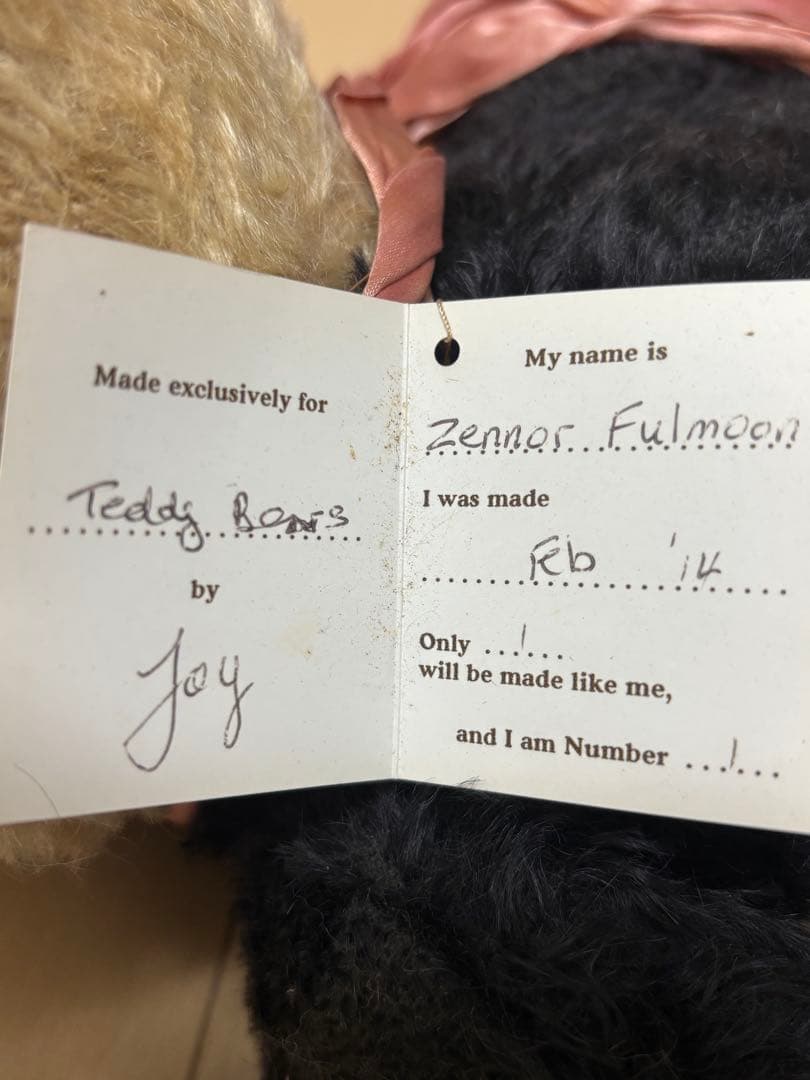 Made exclusively for
Teddy Bears
by
Joy
My name is
Zennor Fulmoon
I was made
Feb '14
Only 1
will be made like me,
and I am Number 1